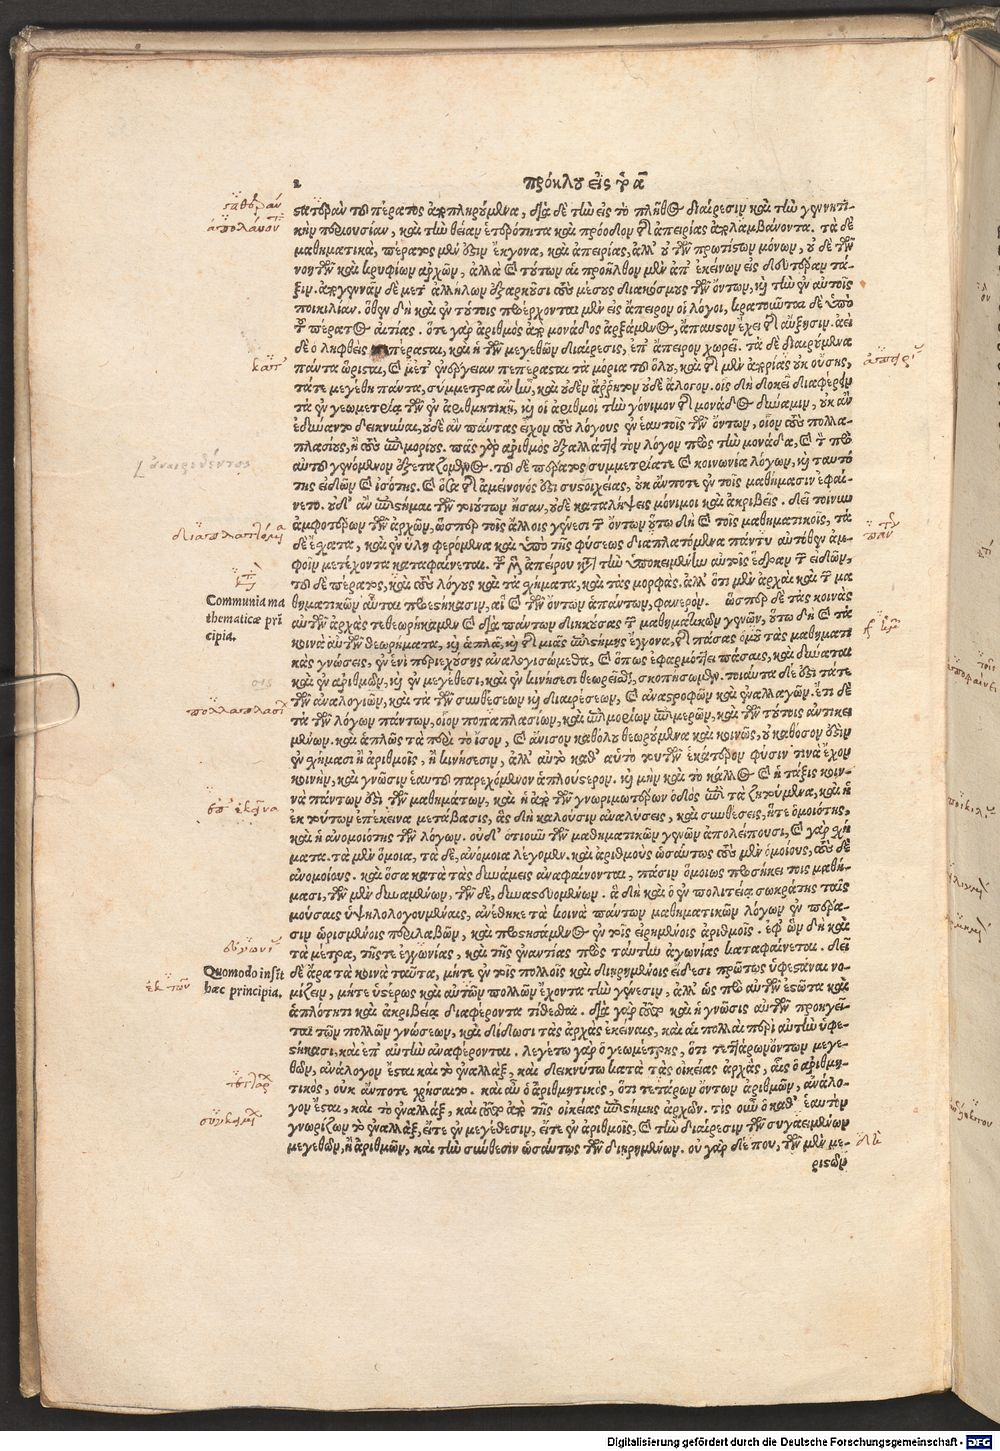 2
πρόκλου εἰς τὸ αʹ
κὴν περιουσίαν, καὶ τὴν θείαν ἑτερότητα καὶ πρόοδον τῆς ἀπειρίας ἀπολαμβάνοντα. τὰ δὲ
μαθηματικὰ, πέρατος μέν εἰσιν ἔκγονα, καὶ ἀπειρίας, ἀλλ' οὐ τῶν πρωτίστων μόνων, οὐ δὲ τῶν
νοητῶν καὶ κρυφίων ἀρχῶν, ἀλλὰ καὶ τούτων αἳ προῆλθον μὲν ἀπ' ἐκείνων εἰς δευτέραν τά-
ξιν. ἀπογεννᾶν δὲ μετ' ἀλλήλων ἐξαρκοῦσι τοὺς μέσους διακόσμους τῶν ὄντων, καὶ τὴν ἐν αὐτοῖς
ποικιλίαν. ὅθεν δὴ καὶ ἐν τούτοις προέρχονται μὲν εἰς ἄπειρον οἱ λόγοι, κρατοῦνται δὲ ὑπὸ
τῆς πέρατος αἰτίας. ὅτε γὰρ ἀριθμὸς ἀπὸ μονάδος ἀρξάμενος, ἄπαυστον ἔχει τὴν αὔξησιν. ἀεὶ
δὲ ὁ ληφθεὶς πεπέρασται, καὶ ἡ τῶν μεγεθῶν διαίρεσις, ἐπ' ἄπειρον χωρεῖ. τὰ δὲ διαιρούμενα
πάντα ὥρισται, καὶ μετ' ἐνέργειαν πεπέρασται τὰ μόρια τοῦ ὅλου, καὶ τῆς μὲν ἀπειρίας οὐκ οὔσης,
τάτε μεγέθη πάντα, σύμμετρα ἂν ἦν, καὶ οὐδὲν ἄῤῥητον οὐδὲ ἄλογον. οἷς δὴ δοκεῖ διαφέρειν
τὰ ἐν γεωμετρίᾳ τῶν ἐν ἀριθμητικῇ, καὶ οἱ ἀριθμοὶ τὴν γόνιμον τῆς μονάδος δύναμιν, οὐκ ἂν
ἐδύναντο δεικνύναι, οὐδὲ ἂν πάντας εἶχον τοὺς λόγους ἐν ἑαυτοῖς τῶν ὄντων, οἷον τοὺς πολλα-
πλασίους, ἢ τοὺς ἐπιμορίους. πᾶς γὰρ ἀριθμὸς ἐξαλλάττει τὸν λόγον πρὸς τὴν μονάδα, καὶ τὸν πρὸ
της εἰδῶν καὶ ἰσότης. καὶ ὅσα τῆς ἀμείνονός ἐστι συστοιχείας, οὐκ ἄν ποτε ἐν τοῖς μαθήμασιν ἐφαί-
νετο. οὐδ' ἂν ἐπιστῆμαι τῶν τοιούτων ἦσαν, οὐδὲ καταλήψεις μόνιμοι καὶ ἀκριβεῖς. δεῖ τοίνυν
ἀμφοτέρων τῶν ἀρχῶν, ὥσπερ τοῖς ἄλλοις γένεσι τῶν ὄντων οὕτω δὴ καὶ τοῖς μαθηματικοῖς, τὰ
δὲ ἔσχατα, καὶ ἐν ὕλῃ φερόμενα καὶ ὑπὸ τῆς φύσεως διαπλατόμενα πάντῃ αὐτόθεν ἀμ-
φοῖν μετέχοντα καταφαίνεται. τοῦ μὲν ἀπείρου κατὰ τὴν ὑποκειμένην αὐτοῖς ἕδραν τῶν εἰδῶν,
τοῦ δὲ πέρατος, καὶ τοὺς λόγους καὶ τὰ σχήματα, καὶ τὰς μορφάς. ἀλλ' ὅτι μὲν ἀρχαὶ καὶ τῶν μα
Communia ma
thematicæ pri
cipia.
θηματικῶν αὗται προεστήκασιν, αἳ καὶ τῶν ὄντων ἁπάντων, φανερόν. ὥσπερ δὲ τὰς κοινὰς
αὐτῶν ἀρχάς τεθεωρήκαμεν καὶ διὰ πάντων διηκούσας τῶν μαθηματικῶν γενῶν, οὕτω δὴ καὶ τὰ
κοινὰ αὐτῶν θεωρήματα, καὶ ἁπλᾶ, καὶ τῆς μιᾶς ἐπιστήμης ἔγγονα, τῆς πάσας ὁμοῦ τὰς μαθηματι
κὰς γνώσεις, ἐν ἑνὶ περιεχούσης ἀναλογισώμεθα, καὶ ὅπως ἐφαρμόττει πάσαις, καὶ δύναται
καὶ ἐν ἀριθμοῖς, καὶ ἐν μεγέθεσι, καὶ ἐν κινήσεσι θεωρεῖσθαι, σκοπήσωμεν. τοιαῦτα δέ ἐστι τάτε
τῶν ἀναλογιῶν, καὶ τὰ τῶν συνθέσεων καὶ διαιρέσεων, καὶ ἀναστροφῶν καὶ ἐναλλαγῶν. ἔτι δὲ
τὰ τῶν λόγων πάντων, οἷον ποπαπλασίων, καὶ ἐπιμορίων ἐπιμερῶν, καὶ τῶν τούτοις ἀντικει
μένων. καὶ ἁπλῶς τὰ περὶ τὸ ἴσον, καὶ ἄνισον καθόλου θεωρούμενα καὶ κοινῶς, οὐ καθόσον ἐστὶν
ἐν σχήμασι ἢ ἀριθμοῖς, ἢ κινήσεσιν, ἀλλ' αὐτὸ καθ' αὑτὸ τούτων ἑκάτερον φύσιν τινὰ ἔχον
κοινὴν, καὶ γνῶσιν ἑαυτοῦ παρεχόμενον ἁπλουστέραν. καὶ μὴν καὶ τὸ κάλλος καὶ ἡ τάξις κοι-
νὰ πάντων ἐστὶ τῶν μαθημάτων, καὶ ἡ ἀπὸ τῶν γνωριμωτέρων ὁδὸς ἐπὶ τὰ ζητούμενα, καὶ ἡ
ἐκ τούτων ἐπέκεινα μετάβασις, ἃς δὴ καλοῦσιν ἀναλύσεις, καὶ συνθέσεις, ἥτε ὁμοιότης,
καὶ ἡ ἀνομοιότης τῶν λόγων. οὐδ' ὁτιοῦν τῶν μαθηματικῶν γενῶν ἀπολείπουσι, καὶ γὰρ σχή
ματα. τὰ μὲν ὅμοια, τὰ δὲ, ἀνόμοια λέγομεν. καὶ ἀριθμοὺς ὡσαύτως τοὺς μὲν ὁμοίους, τοὺς δὲ
ἀνομοίους. καὶ ὅσα κατὰ τὰς δυνάμεις ἀναφαίνονται, πᾶσιν ὁμοίως προσήκει τοῖς μαθή-
μασι, τῶν μὲν δυναμένων, τῶν δὲ, δυναστευομένων. ἃ δὴ καὶ ὁ ἐν πολιτείᾳ σωκράτης ταῖς
μούσαις ὑψηλολογουμέναις, ἀνέθηκε τὰ κοινὰ πάντων μαθηματικῶν λόγων ἐν πέρα-
σιν ὡρισμένοις περιλαβὼν, καὶ προστησάμενος ἐν τοῖς εἰρημένοις ἀριθμοῖς. ἐφ' ὧν δὴ καὶ
τὰ μέτρα, τῆς τε εὐγονίας, καὶ τῆς ἐναντίας πρὸς ταύτην ἀγονίας καταφαίνεται. δεῖ
Quomodo insit
hæc principia.
δὲ ἄρα τὰ κοινὰ ταῦτα, μήτε ἐν τοῖς πολλοῖς καὶ διῃρημένοις εἴδεσι πρώτως ὑφεστάναι νο-
μίζειν, μήτε ὑστέρως καὶ αὐτῶν πολλῶν ἔχοντα τὴν γένεσιν, ἀλλ' ὡς πρὸ αὐτῶν ἑστῶτα καὶ
ἁπλότητι καὶ ἀκριβείᾳ διαφέροντα τίθεσθαι. διὰ γὰρ τοῦτο καὶ ἡ γνῶσις αὐτῶν προηγεῖ-
ται τῶν πολλῶν γνώσεων, καὶ δίδωσι τὰς ἀρχὰς ἐκείναις, καὶ αἱ πολλαὶ περὶ αὐτὴν ὑφε-
στήκασι, καὶ ἐπ' αὐτὴν ἀναφέρονται. λεγέτω γὰρ ὁ γεωμέτρης, ὅτι τεττάρων ὄντων μεγε-
θῶν, ἀνάλογον ἔσται καὶ τὸ ἐναλλὰξ, καὶ δεικνύτω κατὰ τὰς οἰκείας ἀρχὰς, αἷς ὁ ἀριθμη-
τικὸς, οὐκ ἄν ποτε χρήσαιτο. καὶ αὖ ὁ ἀριθμητικὸς, ὅτι τετάρων ὄντων ἀριθμῶν, ἀνάλο-
γον ἔσται, καὶ τὸ ἐναλλὰξ, καὶ τοῦτο ἀπὸ τῆς οἰκείας ἐπιστήμης ἀρχῶν. τίς οὖν ὁ καθ' ἑαυτὸν
γνωρίζων τὸ ἐναλλὰξ, εἴτε ἐν μεγέθεσιν, εἴτε ἐν ἀριθμοῖς, καὶ τὴν διαίρεσιν τῶν συγκειμένων
μεγεθῶν, ἢ ἀριθμῶν, καὶ τὴν σύνθεσιν ὡσαύτως τῶν διῃρημένων. οὐ γὰρ δέ που, τῶν μὲν με-
ριστῶν
Digitalisierung gefördert durch die Deutsche Forschungsgemeinschaft - DFG